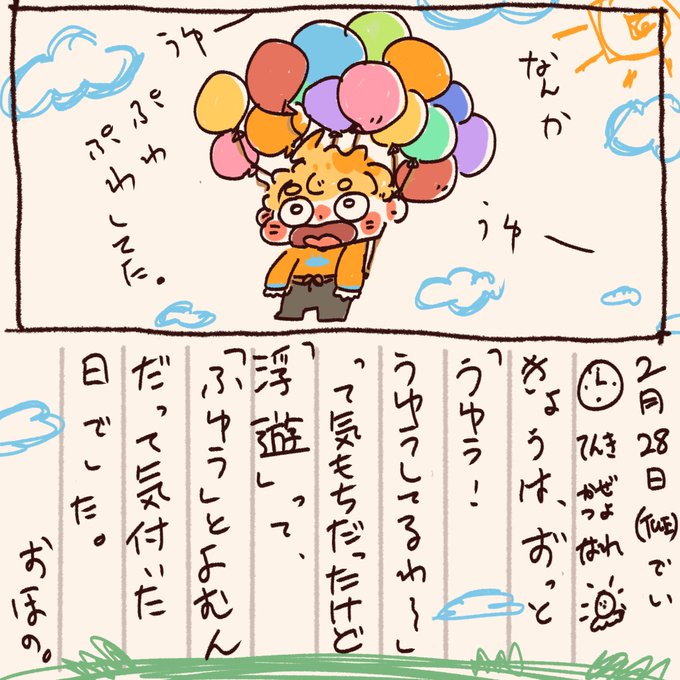 なんか
うゆー
うゆー
ぷわ
ぷわしてた。
2月28日(TUE)でい
てんき かぜつよ なれ
きょうは、ずっと
「うゆう!
うゆうしてるわ〜」
って気もちだったけど
「浮遊」って、
「ふゆう」とよむん
だって気付いた
日でした。
おほの。